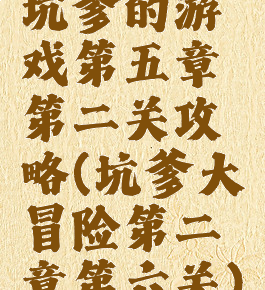 坑爹的游
戏第五章
第二关攻
略(坑爹大
冒险第二
章第六关)